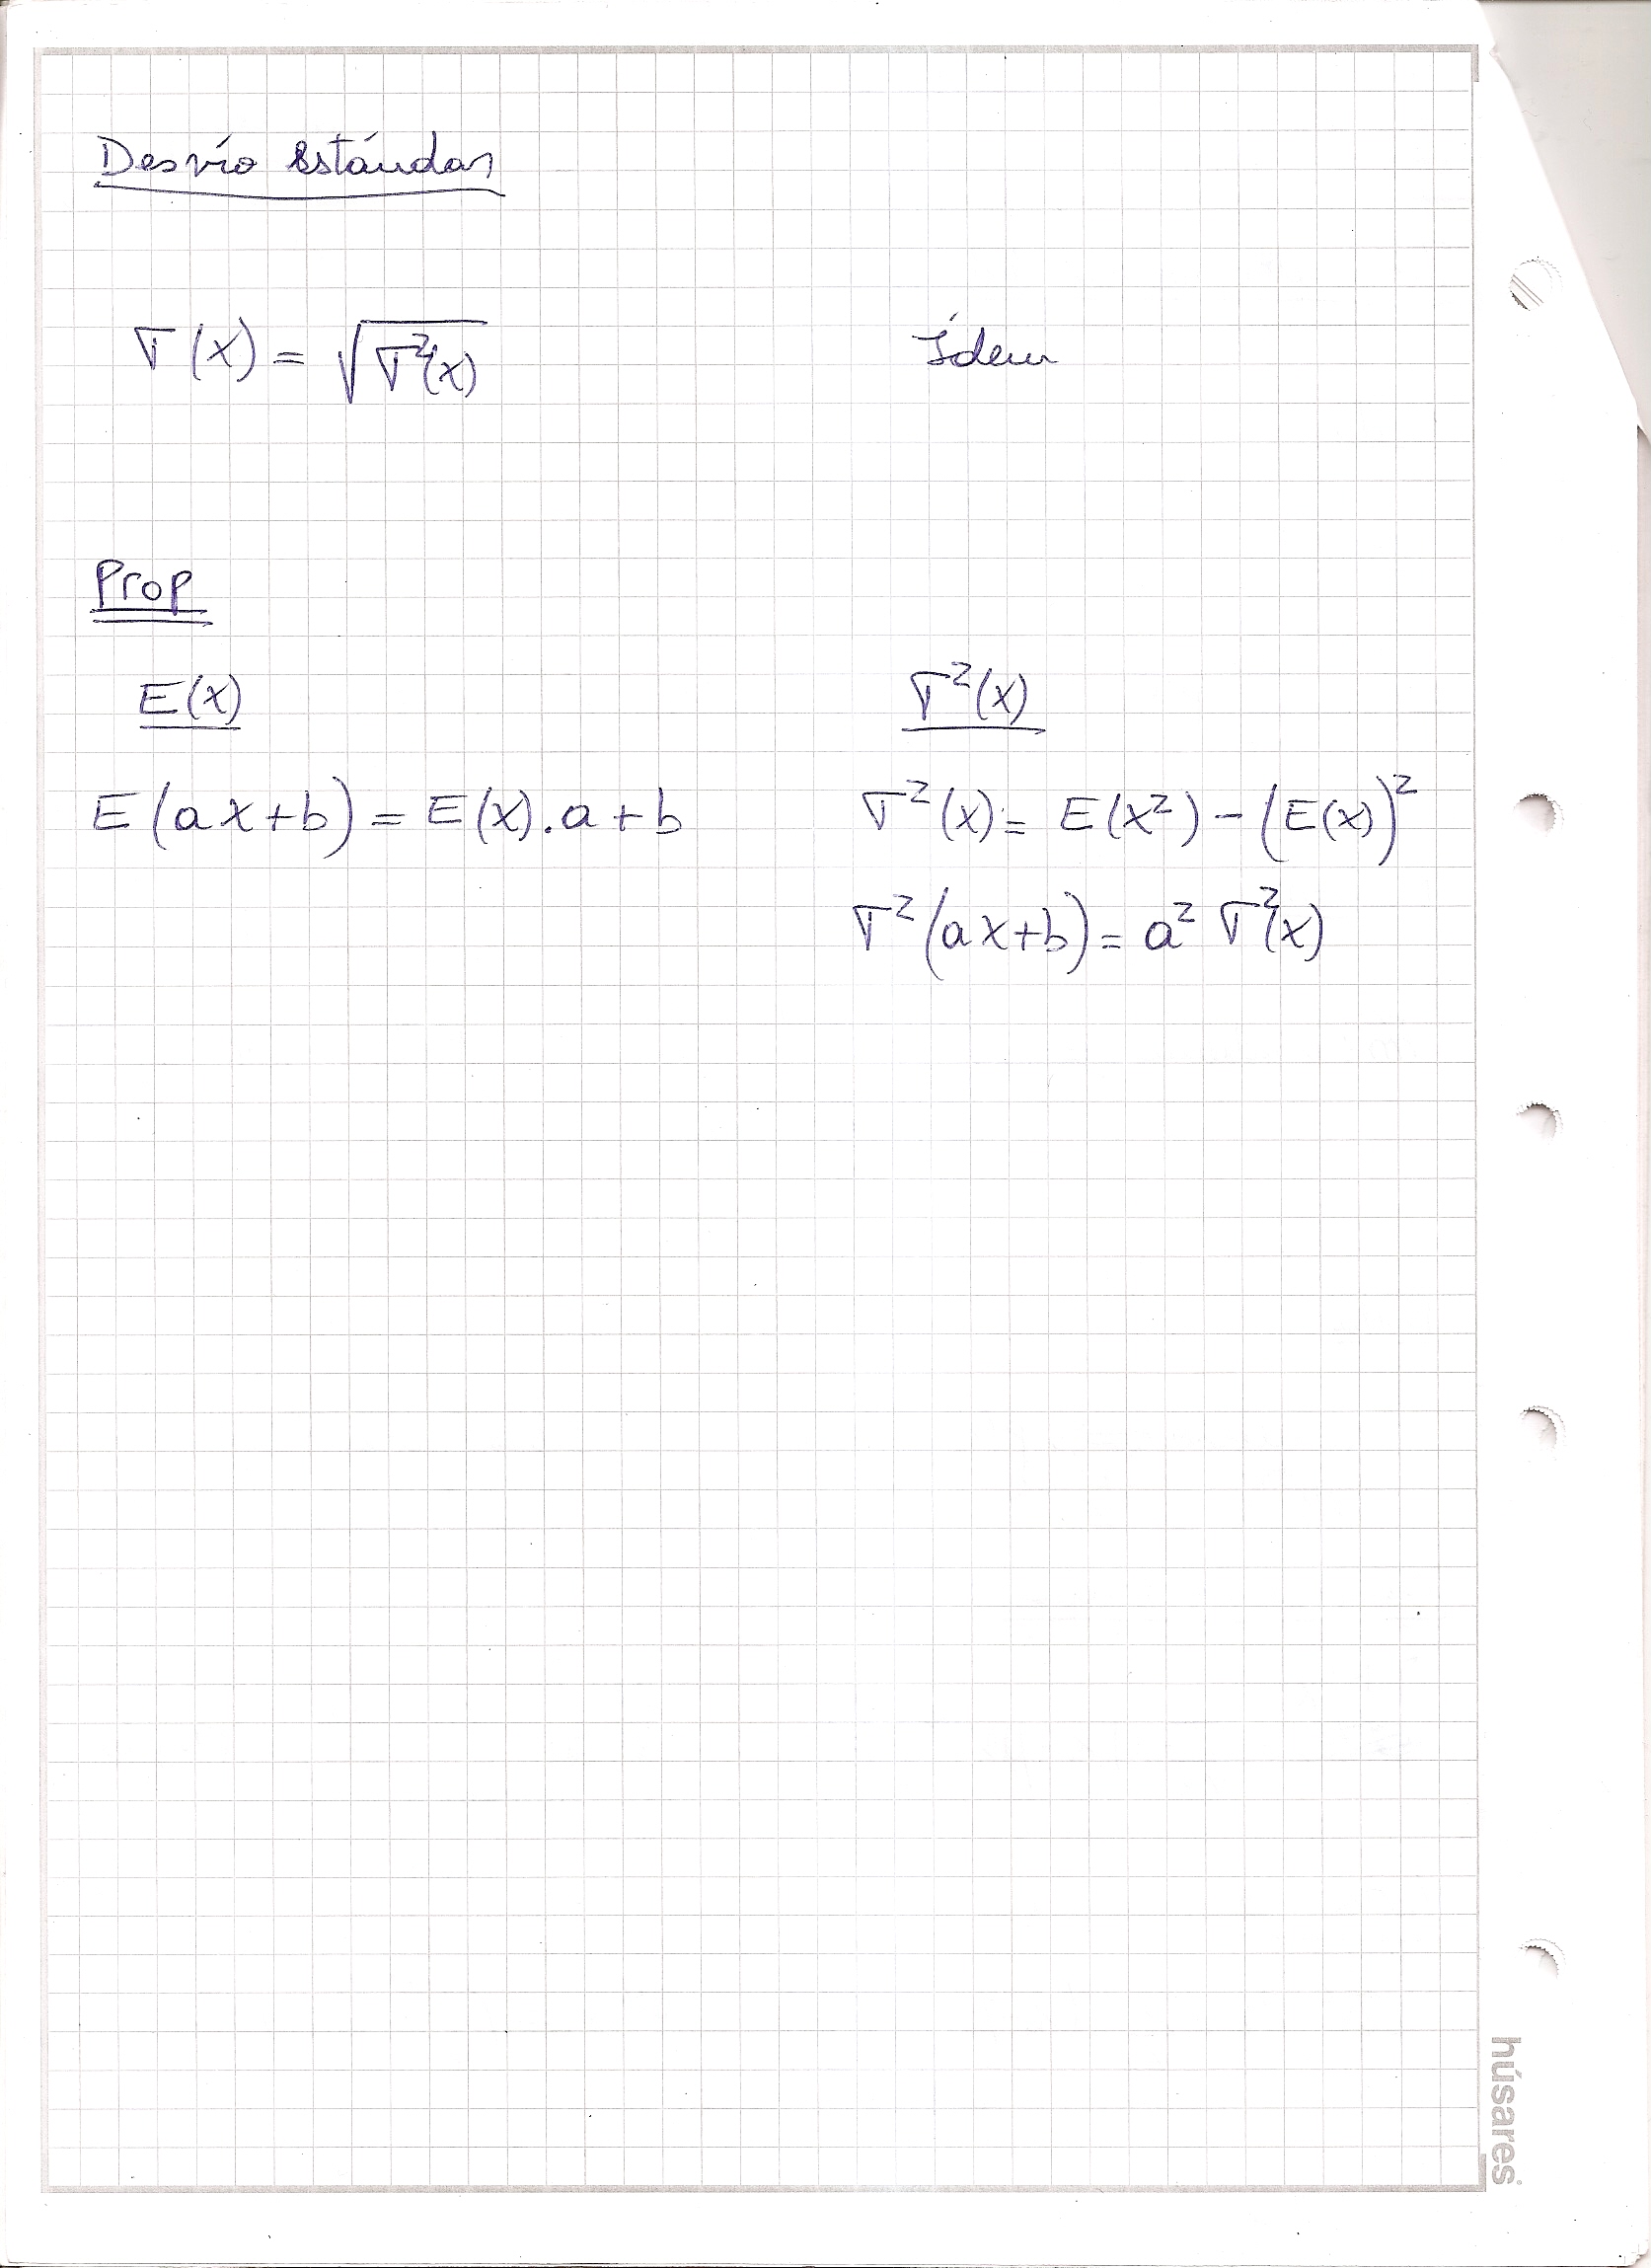 Desvío Estándar
σ(x) = √σ²(x) Ídem
Prop
E(x) σ²(x)
E(ax+b) = E(x).a+b σ²(x) = E(x²) - (E(x))²
σ²(ax+b) = a² σ²(x)
húsares